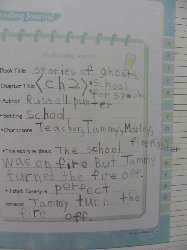 Reading Journal
My Reading Journal
Book Title stories of ghosts
Chapter Title (ch2) School
for spooks
Author Russell punter
Setting School,
Characters Teacher, Tammy, Marley,
firefighter
This story is about The school
was on fire But Tammy
turned the fire off.
I think Tammy is perfect
because Tammy turn the
fire off.